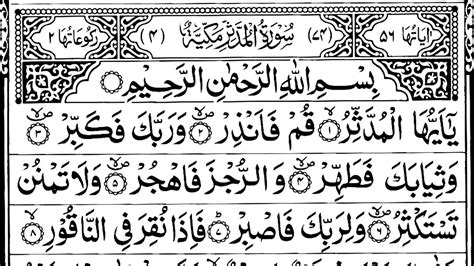 اٰيَاتُهَا ٥٦ (٧٤) سُوْرَةُ الْمُدَّثِّرِ مَكِّيَّةٌ (٤) رُكُوْعَاتُهَا ٢
بِسْمِ اللّٰهِ الرَّحْمٰنِ الرَّحِيْمِ
يٰۤاَيُّهَا الْمُدَّثِّرُ ۙ﴿۱﴾ قُمْ فَاَنْذِرْ ۪ۙ﴿۲﴾ وَرَبَّكَ فَكَبِّرْ ۪ۙ﴿۳﴾
وَثِيَابَكَ فَطَهِّرْ ۪ۙ﴿۴﴾ وَالرُّجْزَ فَاهْجُرْ ۪ۙ﴿۵﴾ وَلَا تَمْنُنْ
تَسْتَكْثِرُ ۪ۙ﴿۶﴾ وَلِرَبِّكَ فَاصْبِرْ ؕ﴿۷﴾ فَاِذَا نُقِرَ فِى النَّاقُوْرِ ۙ﴿۸﴾